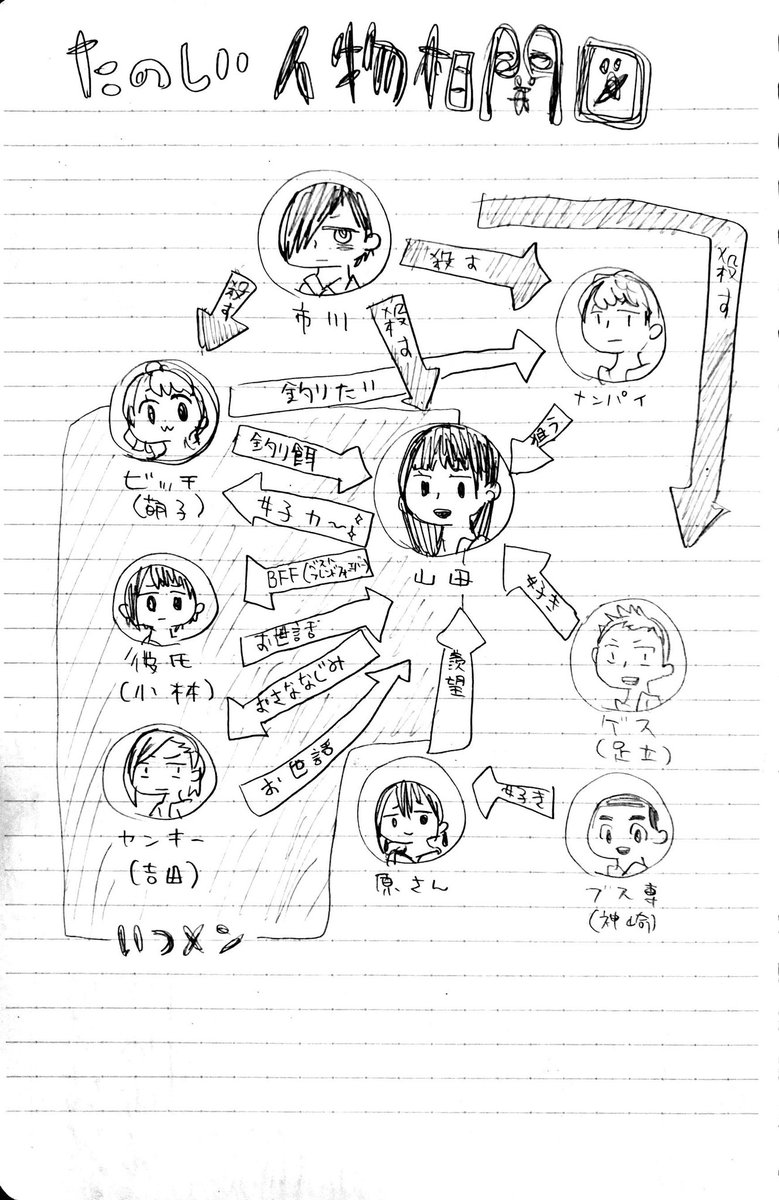 たのしい人物相関図
市川
殺す
殺す
殺す
殺す
ナンパイ
釣りたい
狙う
ビッチ
(萌子)
釣り餌
女子力〜
山田
彼氏
(小林)
BFF(ベストフレンドフォーエバー)
お世話
好き
ゲス
(足立)
おさななじみ
羨望
ヤンキー
(吉田)
お世話
原さん
好き
ブス専
(神崎)
いつメン